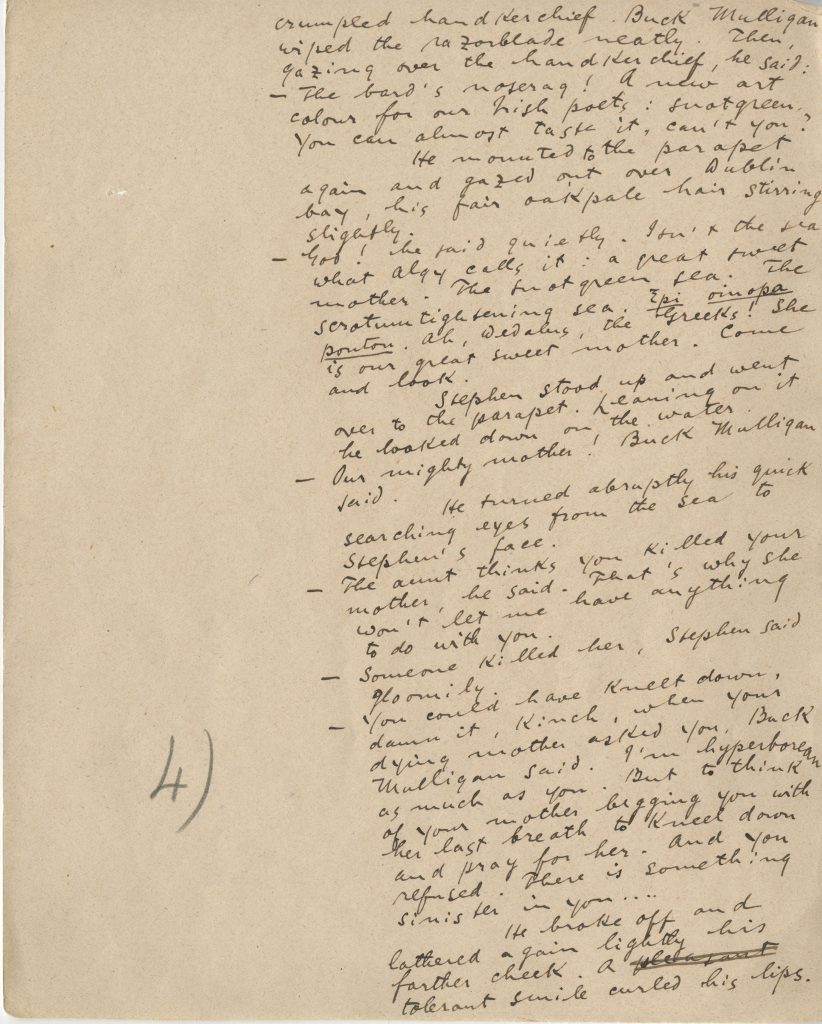 crumpled handkerchief. Buck Mulligan
wiped the razorblade neatly. Then,
gazing over the handkerchief, he said:
— The bard's noserag! A new art
colour for our Irish poets: snotgreen.
You can almost taste it, can't you?
He mounted to the parapet
again and gazed out over Dublin
bay, his fair oakpale hair stirring
slightly.
— God! he said quietly. Isn't the sea
what Algy calls it: a great sweet
mother. The snotgreen sea. The
scrotumtightening sea. Epi oinopa
ponton. Ah, Dedalus, the Greeks! She
is our great sweet mother. Come
and look.
Stephen stood up and went
over to the parapet. Leaning on it
he looked down on the water.
— Our mighty mother! Buck Mulligan
said.
He turned abruptly his quick
searching eyes from the sea to
Stephen's face.
— The aunt thinks you killed your
mother, he said. That's why she
won't let me have anything
to do with you.
— Someone killed her, Stephen said
gloomily.
— You could have knelt down,
damn it, Kinch, when your
dying mother asked you, Buck
Mulligan said. I'm hyperborean
as much as you. But to think
of your mother begging you with
her last breath to kneel down
and pray for her. And you
refused. There is something
sinister in you....
He broke off and
lathered again lightly his
farther cheek. A pleasant
tolerant smile curled his lips.
4)